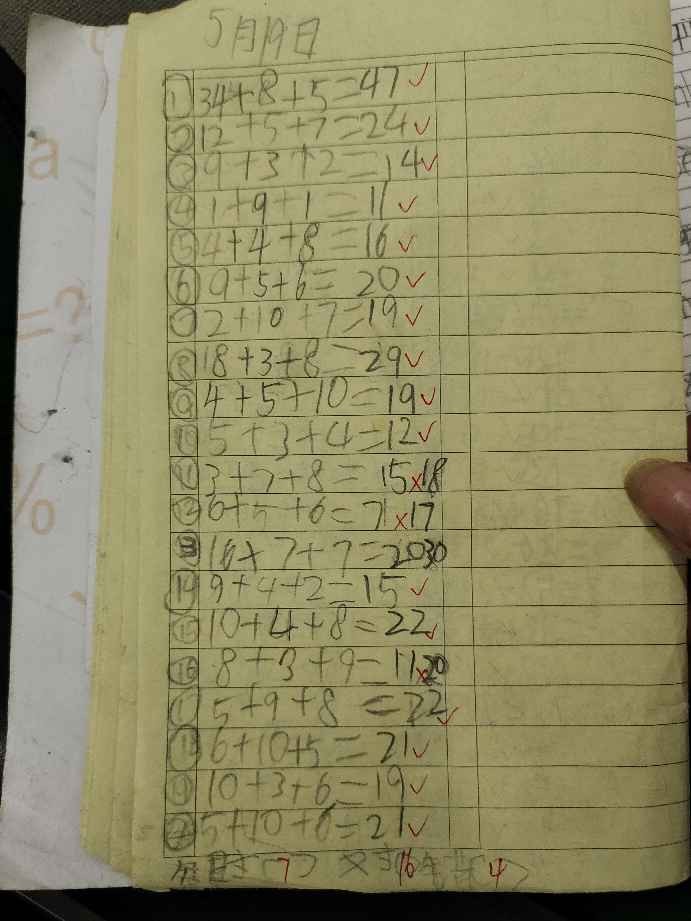 5月19日
① 34+8+5=47 ✓
② 12+5+7=24 ✓
③ 9+3+2=14 ✓
④ 1+9+1=11 ✓
⑤ 4+4+8=16 ✓
⑥ 9+5+6=20 ✓
⑦ 2+10+7=19 ✓
⑧ 18+3+8=29 ✓
⑨ 4+5+10=19 ✓
⑩ 5+3+4=12 ✓
⑪ 3+7+8=15×18
⑫ 6+5+6=71×17
⑬ 16+7+7=2030
⑭ 9+4+2=15 ✓
⑮ 10+4+8=22 ✓
⑯ 8+3+9=11×20
⑰ 5+9+8=22 ✓
⑱ 6+10+5=21 ✓
⑲ 10+3+6=19 ✓
⑳ 5+10+6=21 ✓
7 16 4
a
=?
%